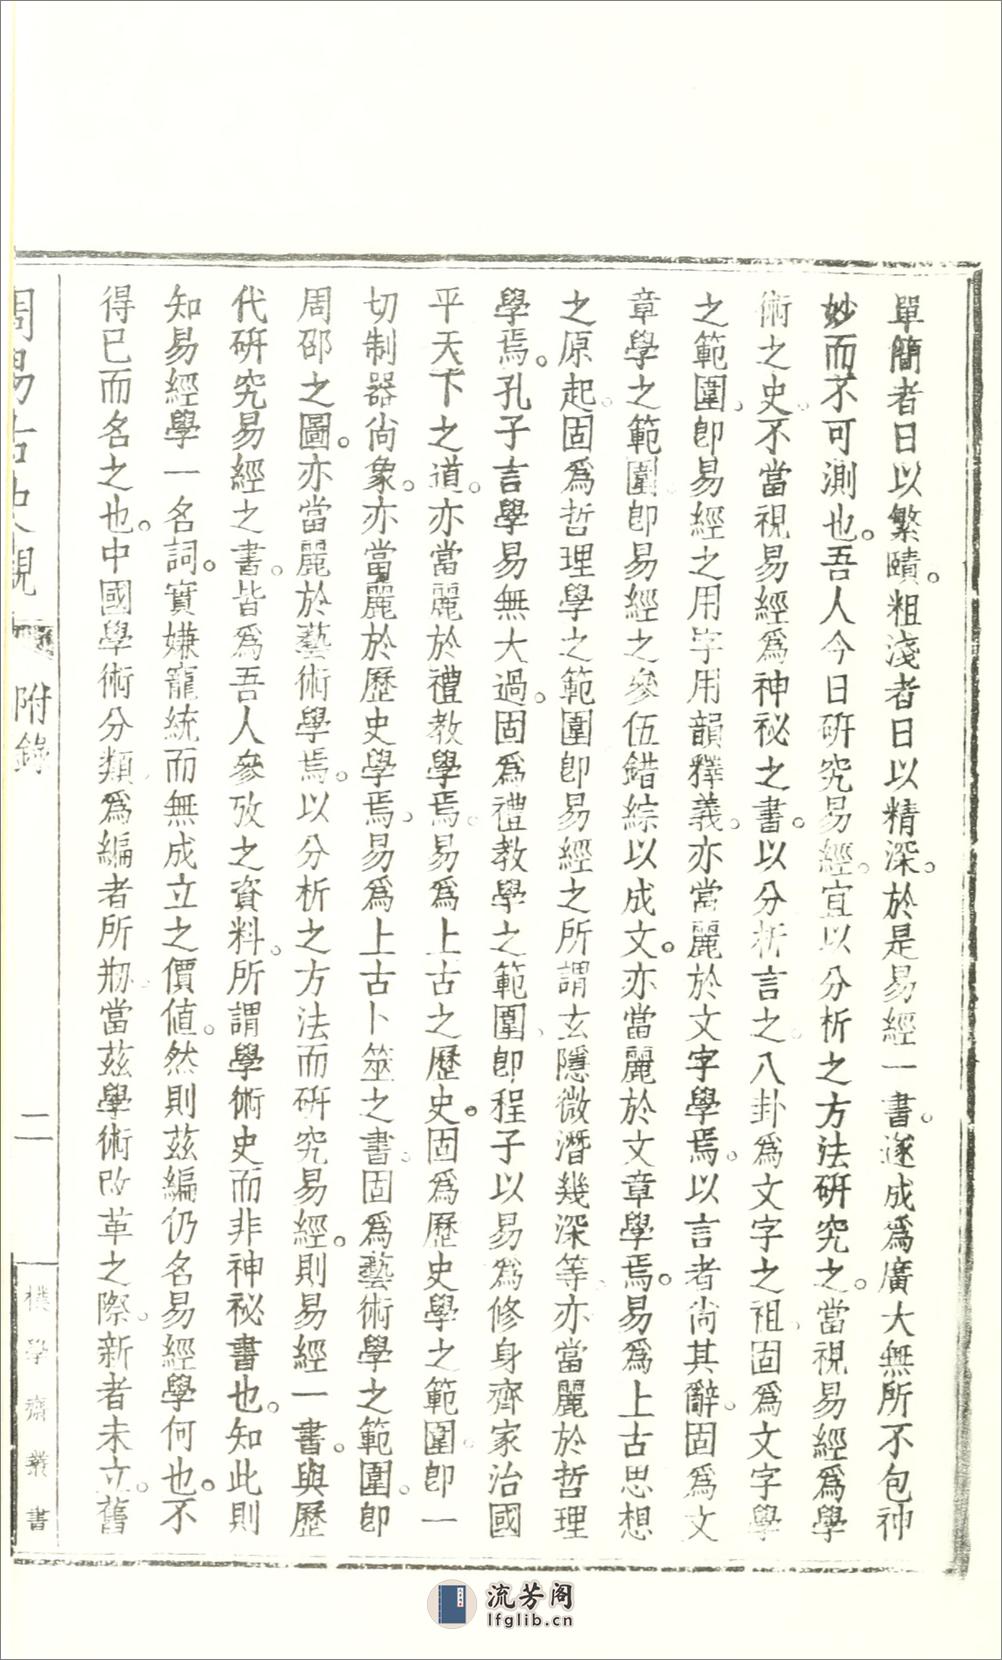 單簡者日以繁賾。粗淺者日以精深。於是易經一書。遂成爲廣大無所不包神
妙而不可測也。吾人今日硏究易經。宜以分析之方法硏究之。當視易經爲學
術之史。不當視易經爲神祕之書。以分析言之。八卦爲文字之祖。固爲文字學
之範圍。卽易經之用字用韻釋義。亦當麗於文字學焉。以言者尙其辭。固爲文
章學之範圍。卽易經之參伍錯綜以成文。亦當麗於文章學焉。易爲上古思想
之原起。固爲哲理學之範圍。卽易經之所謂玄隱微潛幾深等。亦當麗於哲理
學焉。孔子言學易無大過。固爲禮教學之範圍。卽程子以易爲修身齊家治國
平天下之道。亦當麗於禮教學焉。易爲上古之歷史。固爲歷史學之範圍。卽一
切制器尙象。亦當麗於歷史學焉。易爲上古卜筮之書。固爲藝術學之範圍。卽
周邵之圖。亦當麗於藝術學焉。以分析之方法而硏究易經。則易經一書。與歷
代硏究易經之書。皆爲吾人參攷之資料。所謂學術史而非神祕書也。知此則
知易經學一名詞。實嫌寵統而無成立之價値。然則茲編仍名易經學何也。不
得已而名之也。中國學術分類。爲編者所刱。當茲學術改革之際。新者未立。舊
周易古史觀 附錄 二 樸學齋叢書
流芳阁
lfglib.cn